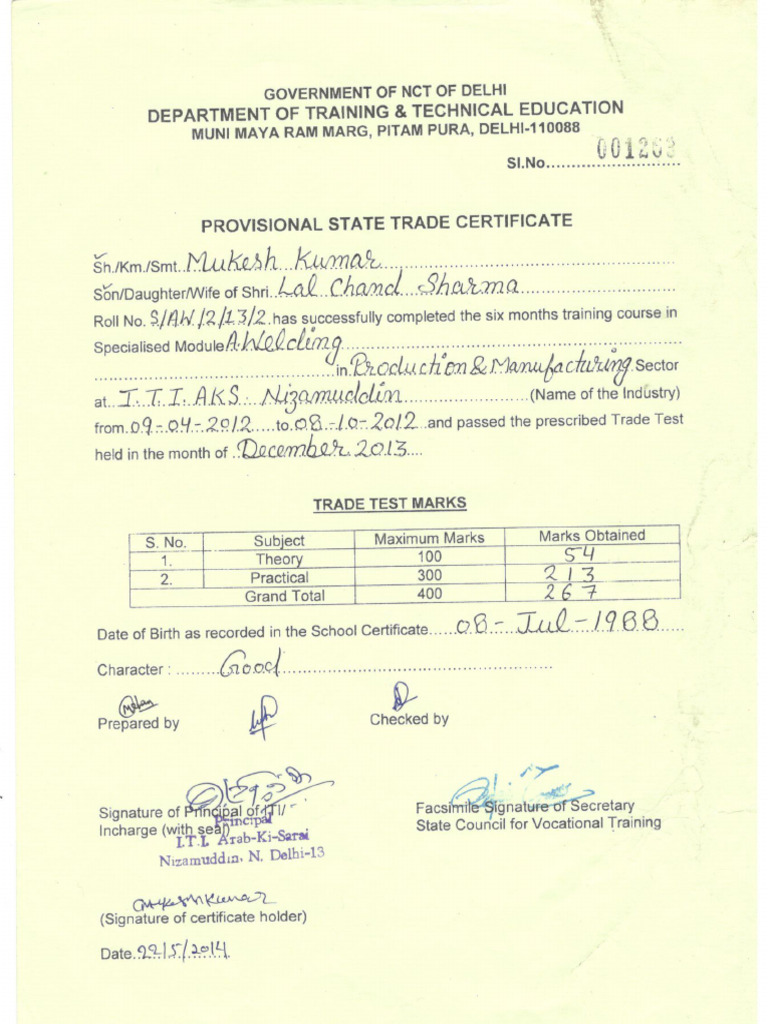 GOVERNMENT OF NCT OF DELHI
DEPARTMENT OF TRAINING & TECHNICAL EDUCATION
MUNI MAYA RAM MARG, PITAM PURA, DELHI-110088
Sl.No.......001263
PROVISIONAL STATE TRADE CERTIFICATE
Sh./Km./Smt. Mukesh Kumar
Son/Daughter/Wife of Shri. Lal Chand Sharma
Roll No. S/AW/2/13/2 has successfully completed the six months training course in
Specialised Module A.Welding
in Production & Manufacturing Sector
at I.T.I. AKS. Nizamuddin (Name of the Industry)
from 09-04-2012 to 08-10-2012 and passed the prescribed Trade Test
held in the month of December 2013
TRADE TEST MARKS
S. No. Subject Maximum Marks Marks Obtained
1. Theory 100 54
2. Practical 300 213
Grand Total 400 267
Date of Birth as recorded in the School Certificate 08-Jul-1988
Character : Good
Prepared by Checked by
Signature of Principal of ITI/
Incharge (with seal)
Principal
I.T.I. Arab-Ki-Sarai
Nizamuddin, N. Delhi-13
Facsimile Signature of Secretary
State Council for Vocational Training
Mukesh Kumar
(Signature of certificate holder)
Date 22/5/2014